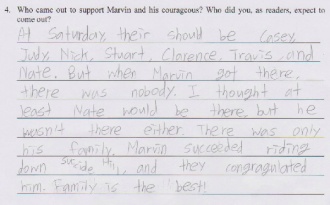 4. Who came out to support Marvin and his courageous? Who did you, as readers, expect to
come out?
At Saturday, their should be Casey,
Judy, Nick, Stuart, Clarence, Travis, and
Nate. But when Marvin got there,
there was nobody. I thought at
least Nate would be there, but he
wasn't there either. There was only
his family. Marvin succeeded riding
down Suicide Hill, and they congragulated
him. Family is the best!